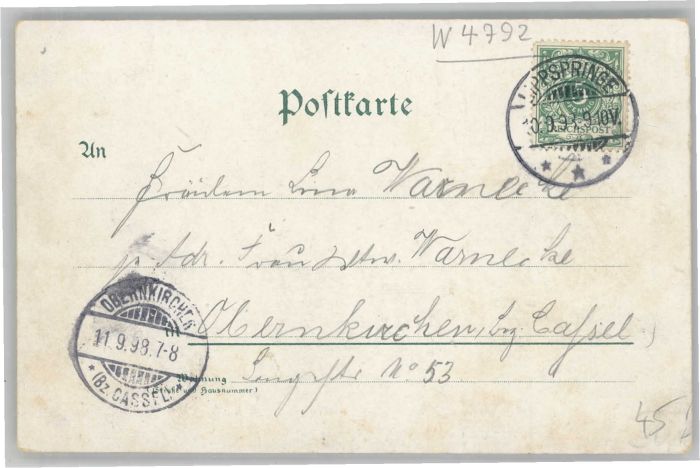 W 4792
LIPPSPRINGE
10.9.98.9-10V.
REICHSPOST
Postkarte
An
Fräulein Lina Warnecke
p. Adr. Frau Wtw. Warnecke
Obernkirchen, bez. Cassel
OBERNKIRCHEN
11.9.98.7-8
* (Bz. CASSEL) *
Wohnung
(Straße und Hausnummer)
No 53
45